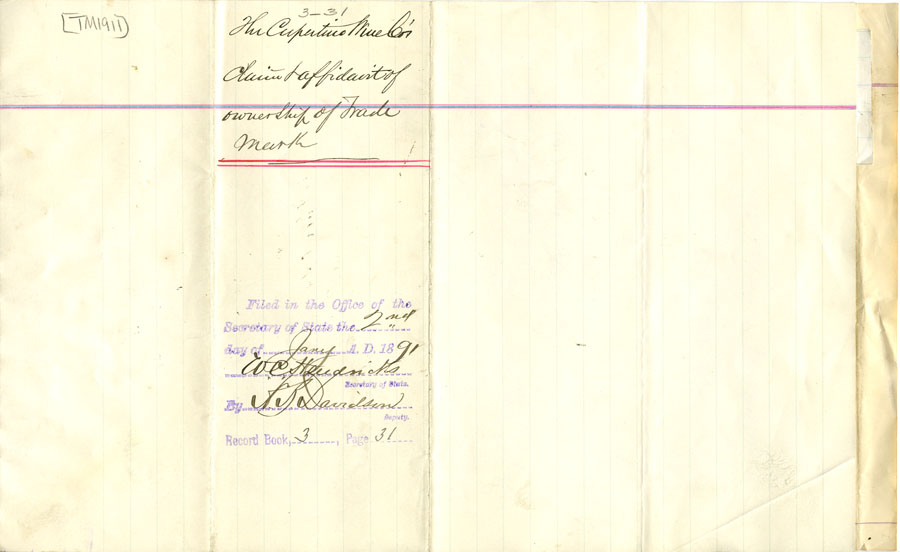 [TM1911]
3-31
The Cupertino Wine Co's
claim & affidavit of
ownership of Trade
Mark
Filed in the Office of the
Secretary of State the 2nd
day of Jany A. D. 1891
W C Hendricks
Secretary of State.
By Davidson
Deputy.
Record Book, 3, Page 31